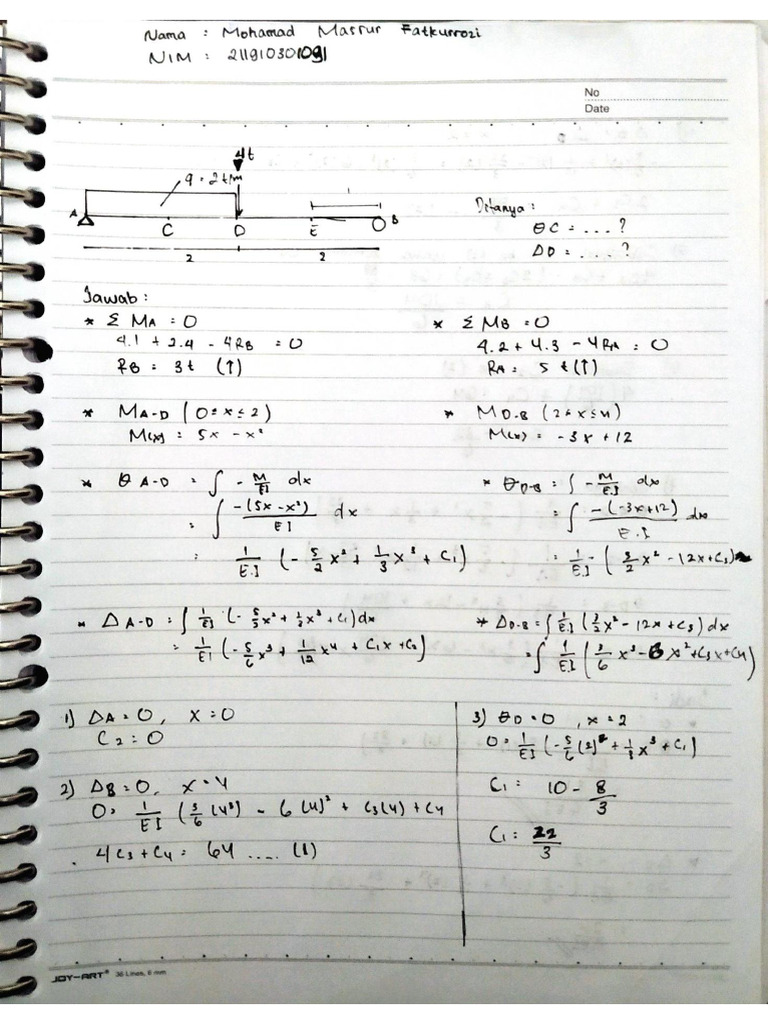 Nama : Mohamad Masrur Fatkurrozi
NIM : 211910301091
No
Date
4t
q = 2 t/m
1
A
C
D
E
B
2
2
Ditanya :
θC = .... ?
ΔD = .... ?
Jawab :
* Σ MA = 0
4.1 + 2.4 - 4RB = 0
RB = 3t (↑)
* Σ MB = 0
4.2 + 4.3 - 4RA = 0
RA = 5 t (↑)
* MA-D (0 ≤ x ≤ 2)
M(x) = 5x - x²
* MD-B (2 ≤ x ≤ 4)
M(x) = -3x + 12
* θ A-D = ∫ - M/EI dx
= ∫ -(5x - x²)/EI dx
= 1/E.I (- 5/2 x² + 1/3 x³ + C1)
* θD-B = ∫ - M/E.I dx
= ∫ -(-3x+12)/E.I dx
= 1/E.I - (3/2 x² - 12x + C3)
* Δ A-D = ∫ 1/EI (- 5/2 x² + 1/3 x³ + C1) dx
= 1/EI (- 5/6 x³ + 1/12 x⁴ + C1x + C2)
* ΔD-B = ∫ 1/E.I (3/2 x² - 12x + C3) dx
= ∫ 1/E.I (3/6 x³ - 6 x² + C3x + C4)
1) ΔA = 0, x = 0
C2 = 0
2) ΔB = 0, x = 4
0 = 1/E I (3/6 (4³) - 6 (4)² + C3(4) + C4
4C3 + C4 = 64 .... (1)
3) θD = 0 , x = 2
0 = 1/EI (- 5/6 (2)² + 1/3 x³ + C1)
C1 = 10 - 8/3
C1 = 22/3
JOY-ART® 36 Lines, 6 mm